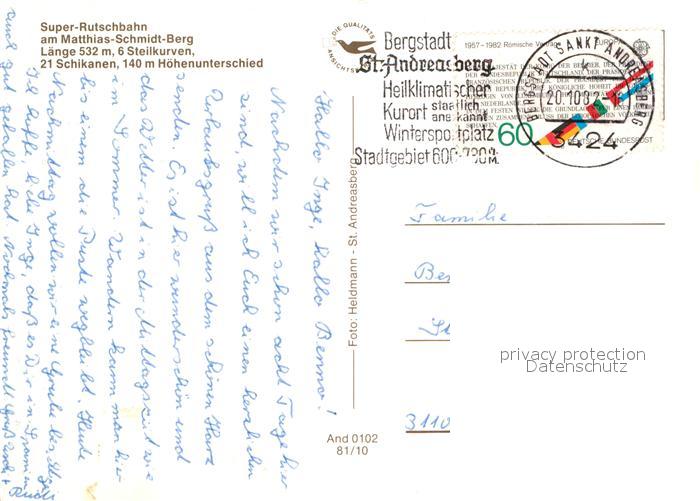 Super-Rutschbahn
am Matthias-Schmidt-Berg
Länge 532 m, 6 Steilkurven,
21 Schikanen, 140 m Höhenunterschied
DIE QUALITÄTS
ANSICHTS
Bergstadt
St. Andreasberg
Heilklimatischer
Kurort staatlich anerkannt
Wintersportplatz
Stadtgebiet 600-790 ü.M.
1957-1982 Römische Verträge EUROPA
60
DEUTSCHE BUNDESPOST
BERGSTADT SANKT ANDREASBERG
20.10.82
3424
Hallo Inge, hallo Benno!
Nachdem wir schon acht Tage hier
sind will ich Euch einen herzlichen
Urlaubsgruß aus dem schönen Harz
senden. Es ist hier wunderschön und
das Wetter ist in der Mittagszeit wie
im Sommer. Wandern kann man hier
bis einem die Puste wegbleibt. Heute
Nachmittag wollen wir eine Grube
Ich hoffe, liebe Inge, daß es Dir in
auch gut gefallen hat. Nochmals
Foto: Heldmann - St. Andreasberg
And 0102
81/10
Familie
Be
St
3110
privacy protection
Datenschutz